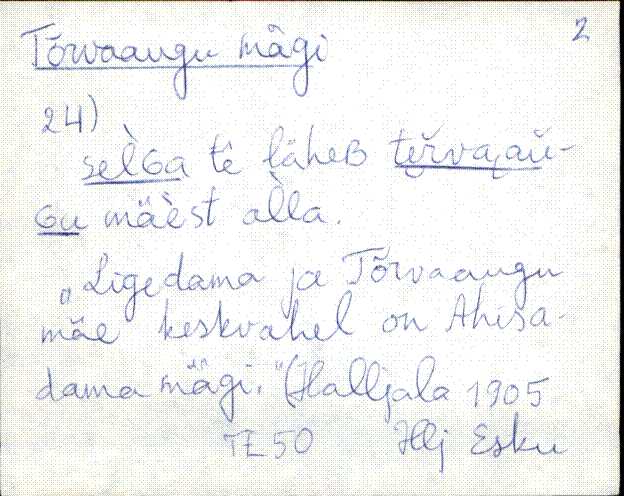 2
Tõrvaaugu mägi
24)
sel̀Ga tê läheB te̮r̆va̮aŭ-
Gu mäèst al̀la.
„Ligedama ja Tõrvaaugu
mäe keskvahel on Ahisa-
dama mägi." (Haljala 1905
TE 50 Hlj Esku